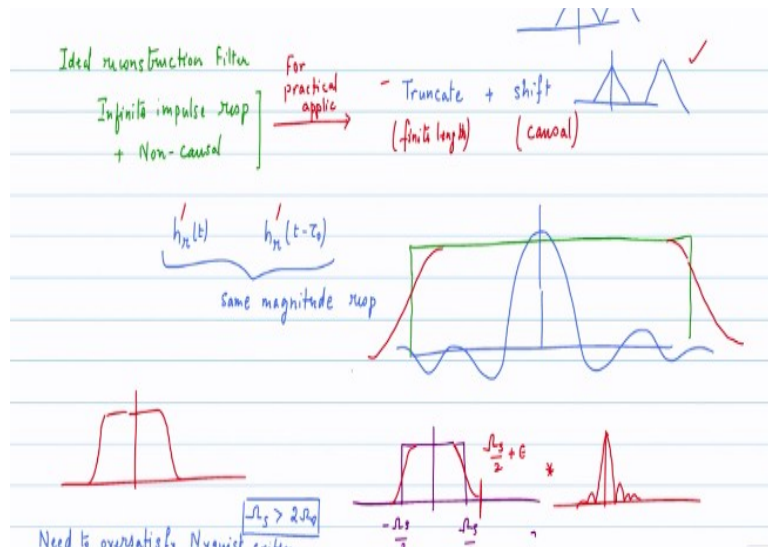 Ideal reconstruction filter
Infinite impulse resp
+ Non-causal
For
practical
applic
- Truncate + shift
(finite length) (causal)
h'r(t) h'r(t-τ0)
same magnitude resp
Ωs/2 + ϵ
*
-Ωs/2 Ωs/2
Ωs > 2Ω
Need to oversatisfy Nyquist